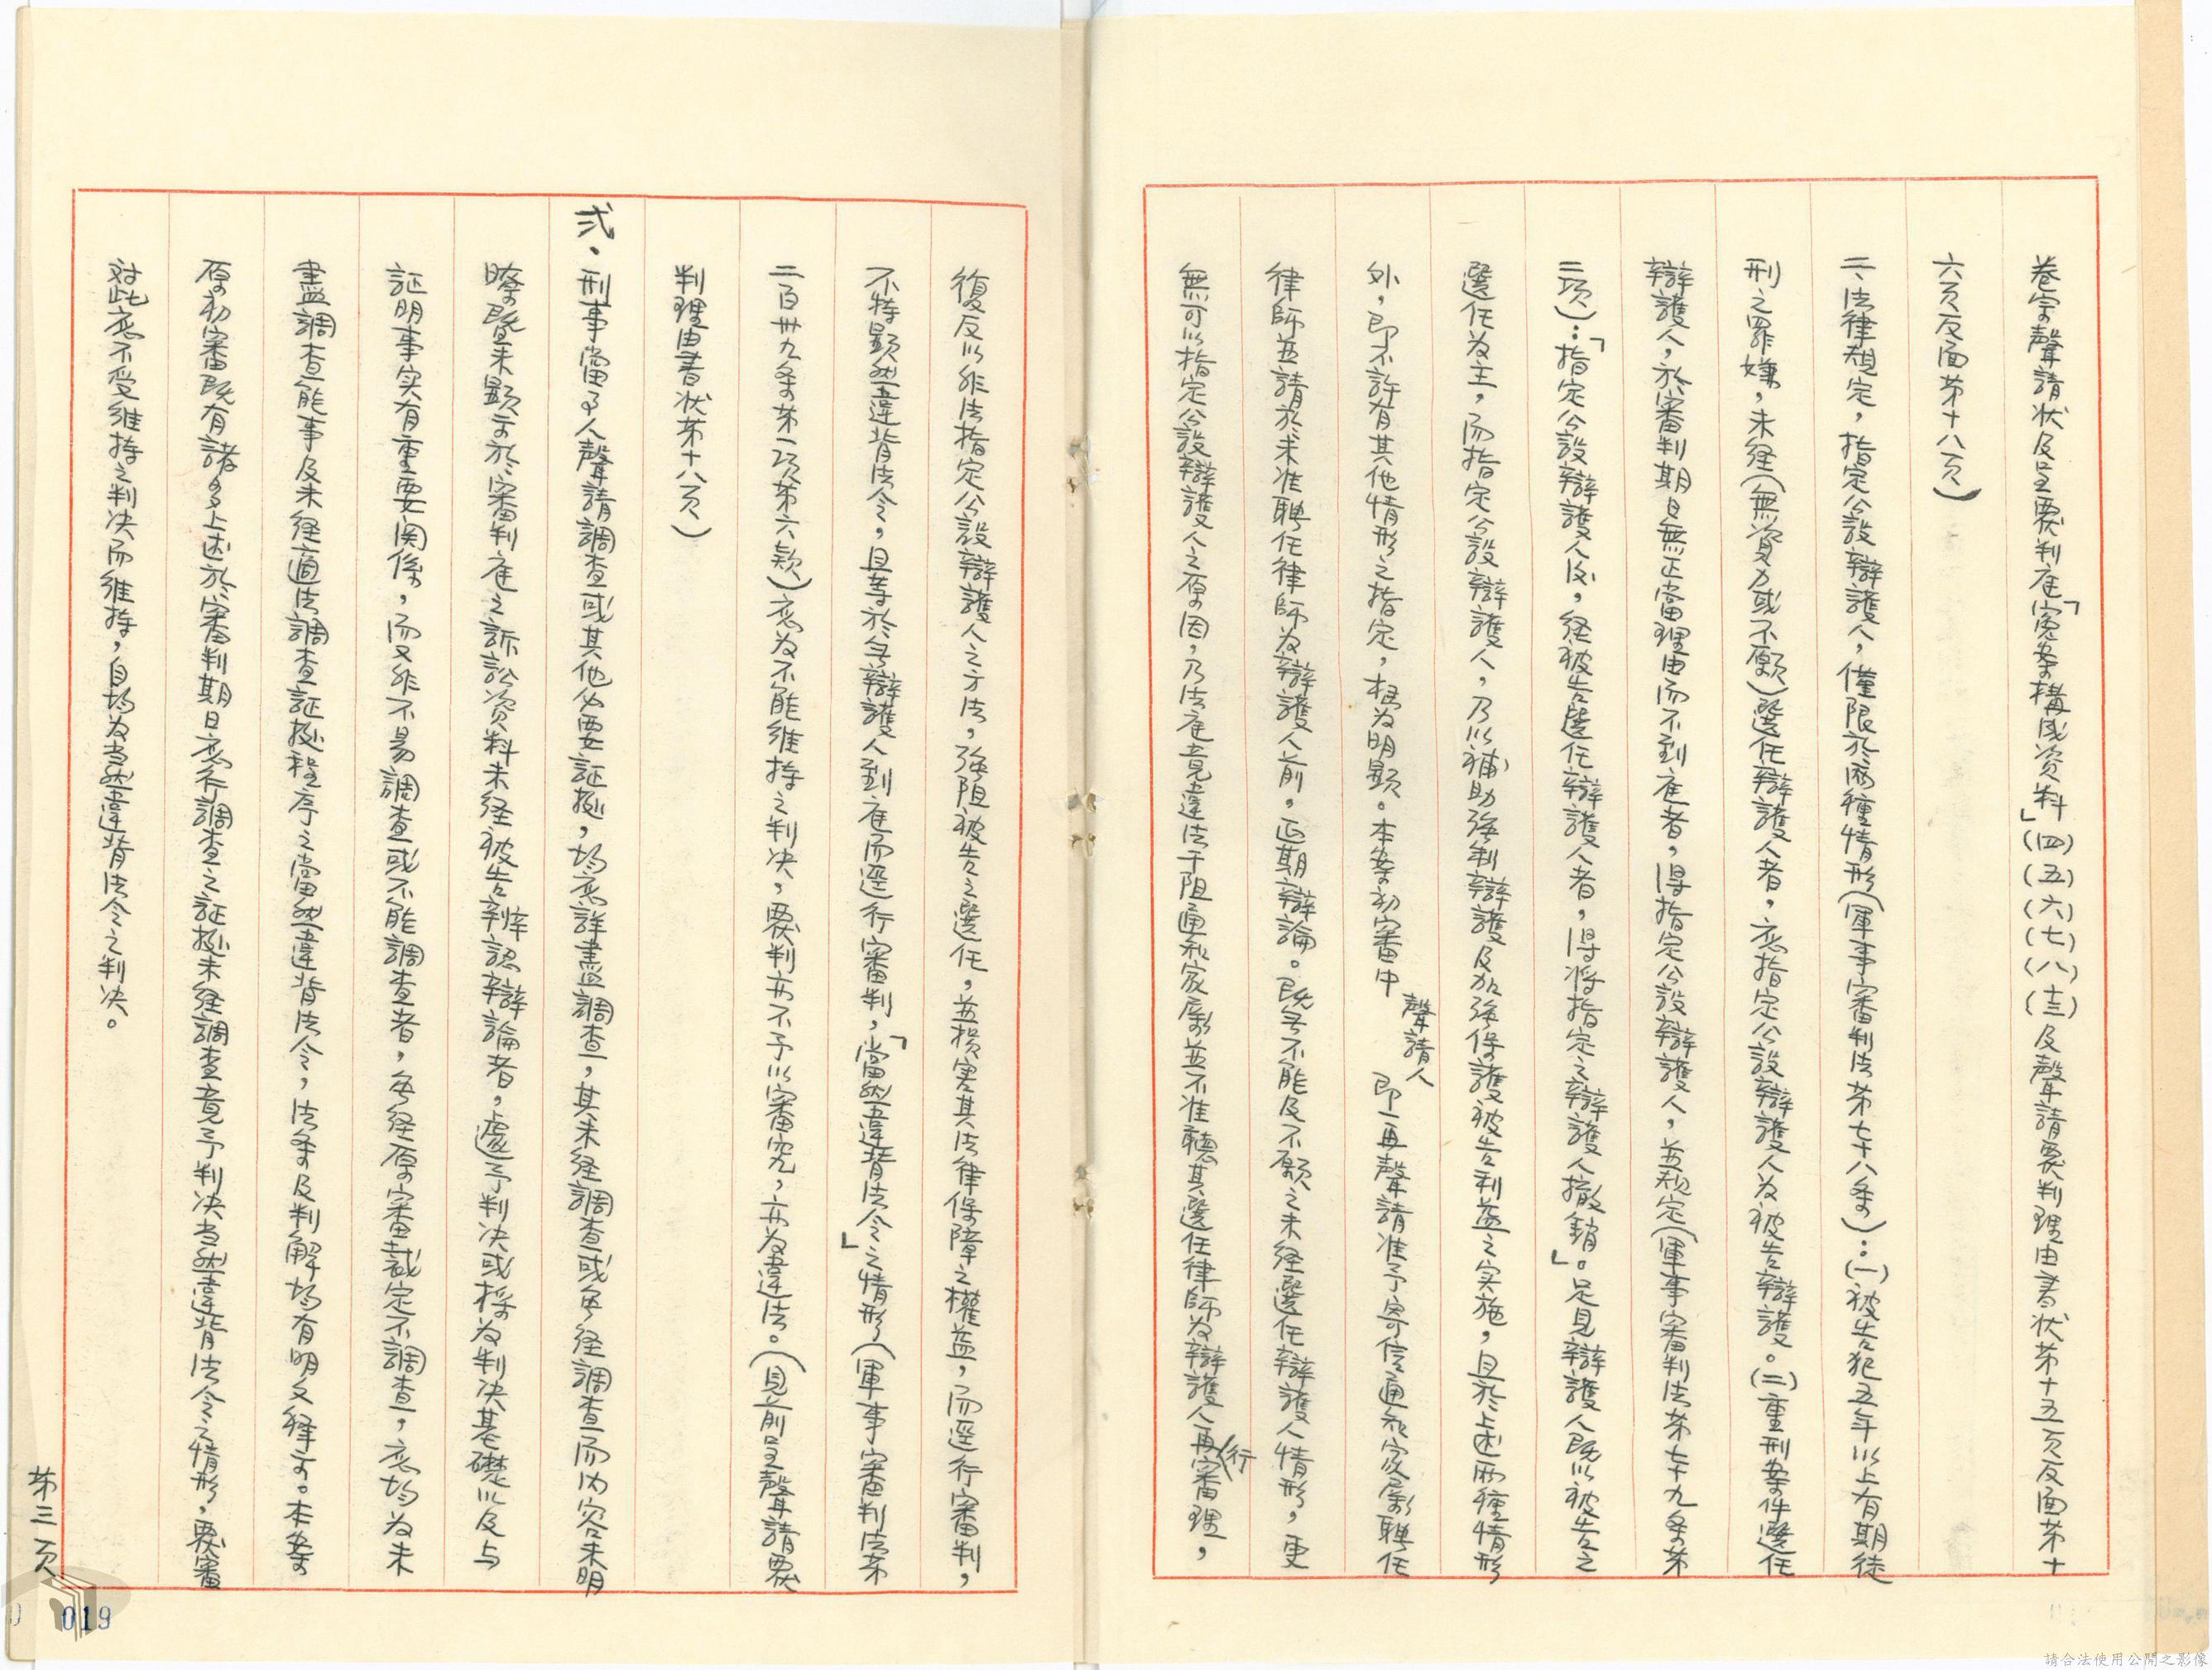 卷宗聲請狀及呈覆判庭「冤案構成资料」(四)(五)(六)(七)(八)(十三)及聲請覆判理由書狀苐十五页反面苐十
六页反面苐十八页)
二、法律規定，指定公設辯護人，僅限於兩種情形(軍事審判法苐七十八条)：(一)被告犯五年以上有期徒
刑之罪嫌，未経(無資力或不願)選任辯護人者，应指定公設辯護人为被告辯護。(二)重刑案件選任
辯護人，於審判期日無正當理由而不到庭者，得指定公設辯護人，並規定(軍事審判法苐七十九条苐
二项)：「指定公設辯護人後，経被告選任辯護人者，得将指定之辯護人撤銷」。足見辯護人既以被告之
選任为主，而指定公設辯護人，乃以補助強制辯護及加強保護被告利益之实施，且於上述兩種情形
外，即不許有其他情形之指定，極为明顯。本案初審中聲請人即一再聲請准予寄信通知家属聘任
律師並請於未准聘任律師为辯護人前，延期辯論。既無不能及不願之未経選任辯護人情形，更
無可以指定公設辯護人之原因，乃法庭竟違法干阻通知家属並不准聽其選任律師为辯護人再行審理，
復反以非法指定公設辯護人之方法，強阻被告之選任，並損害其法律保障之權益，而逕行審判，
不特顯然違背法令，且等於無辯護人到庭而逕行審判，「當然違背法令」之情形(軍事審判法苐
二百卅九条苐一项苐六款)应为不能維持之判决，覆判亦不予以審究，亦为違法。(見前呈聲請覆
判理由書狀苐十八页)
弍、刑事當事人聲請調查或其他必要証據，均应詳盡調查，其未経調查或無経調查而內容未明
瞭暨未顯示於審判庭之訴訟资料未経被告辨認辯論者，遽予判决或採为判决基礎以及与
証明事实有重要関係，而又非不易調查或不能調查者，無経原審裁定不調查，应均为未
盡調查能事及未経適法調查証據程序之當然違背法令，法条及判解均有明文释示。本案
原初審既有諸多上述於審判期日应行調查之証據未経調查竟予判决当然違背法令之情形，覆審
对此应不受維持之判决而維持，自均为当然違背法令之判决。
苐三页
019
請合法使用公開之影像